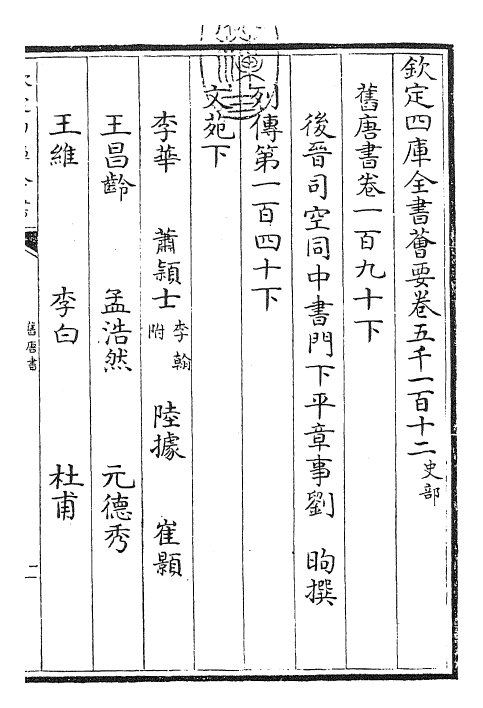 欽定四庫全書薈要卷五千一百十二史部
舊唐書卷一百九十下
後晉司空同中書門下平章事劉昫撰
列傳第一百四十下
文苑下
李華 蕭穎士李翰附 陸據 崔顥
王昌齡 孟浩然 元德秀
王維 李白 杜甫
舊唐書
二